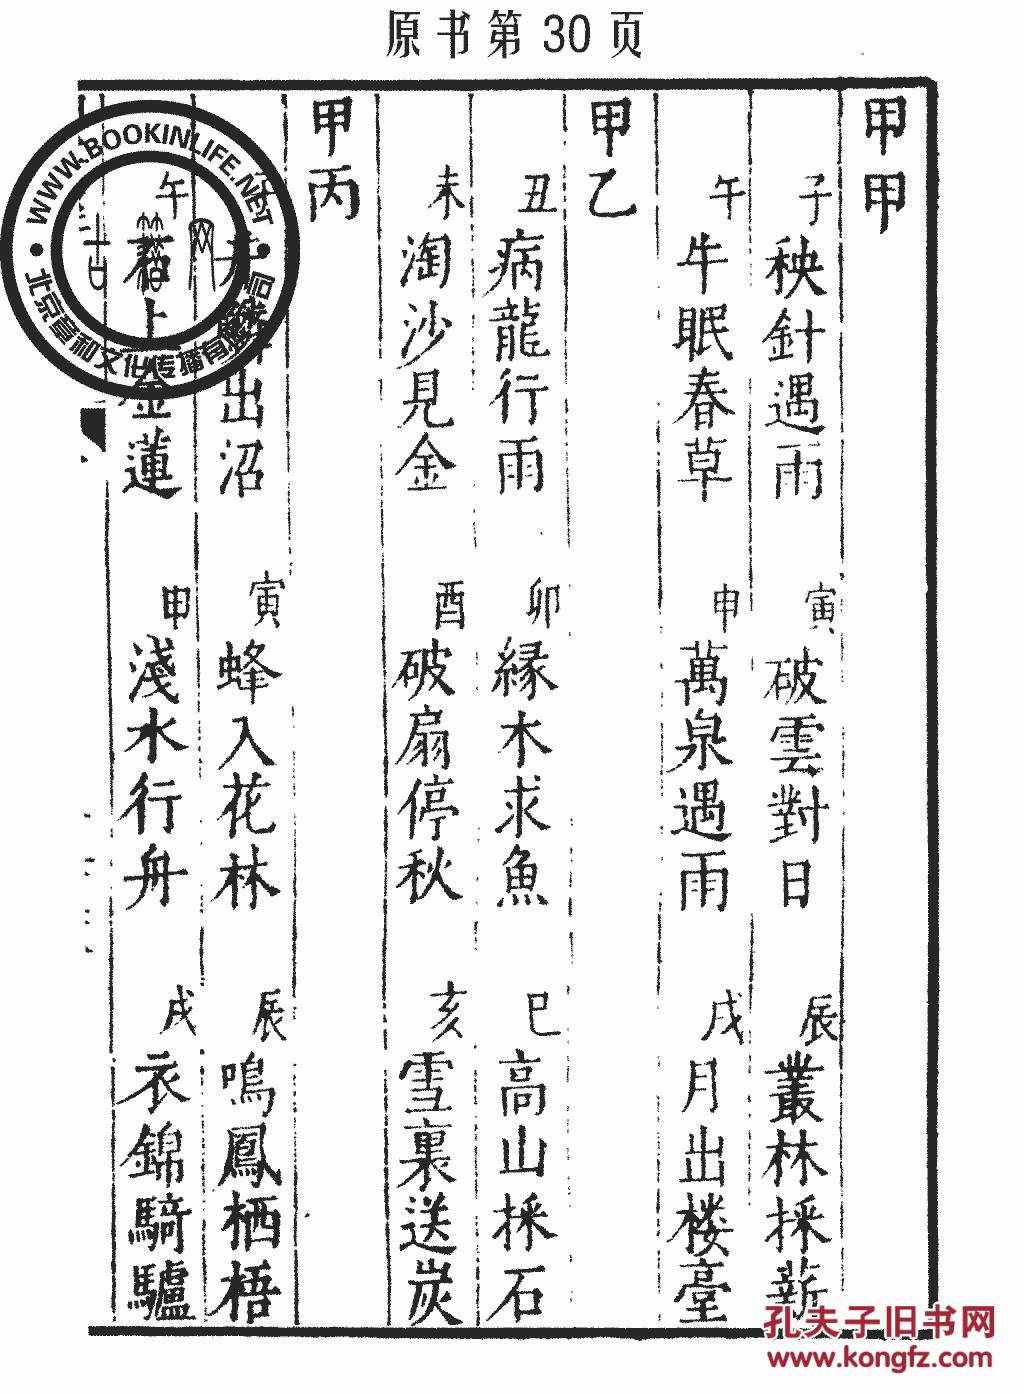 原书第30页
甲甲
子 秧針遇雨 寅 破雲對日 辰 叢林採薪
午 牛眠春草 申 萬泉遇雨 戌 月出楼臺
甲乙
丑 病龍行雨 卯 縁木求魚 巳 高山採石
未 淘沙見金 酉 破扇停秋 亥 雪裏送炭
甲丙
出沼 寅 蜂入花林 辰 鳴鳳栖梧
午 上金蓮 申 淺水行舟 戌 衣錦騎驢
WWW.BOOKINLIFE.NET
北京章和文化传播有限公司
孔夫子旧书网
www.kongfz.com